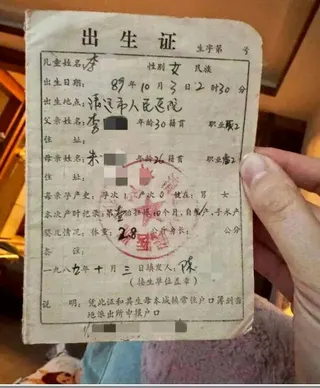 出生证
生字第 号
儿童姓名 李 性别 女 民族
出生日期: 89年10月3日2时30分
出生地点: 清远市人民医院
父亲姓名 李 年龄30籍贯 职业
住 址:
母亲姓名 朱 年龄26籍贯 职业
住 址:
母亲孕产史: 孕次1产次0 健在: 男 女
本次产时记录: 第 胎怀10个月, 自然产、手术产
婴儿情况: 体重: 2.8 身长: 公分
备 注:
一九八九年十月三日填发人: 陈
(接生单位盖章)
说 明: 凭此证和其生母本城镇常住户口簿到当
地派出所申报户口